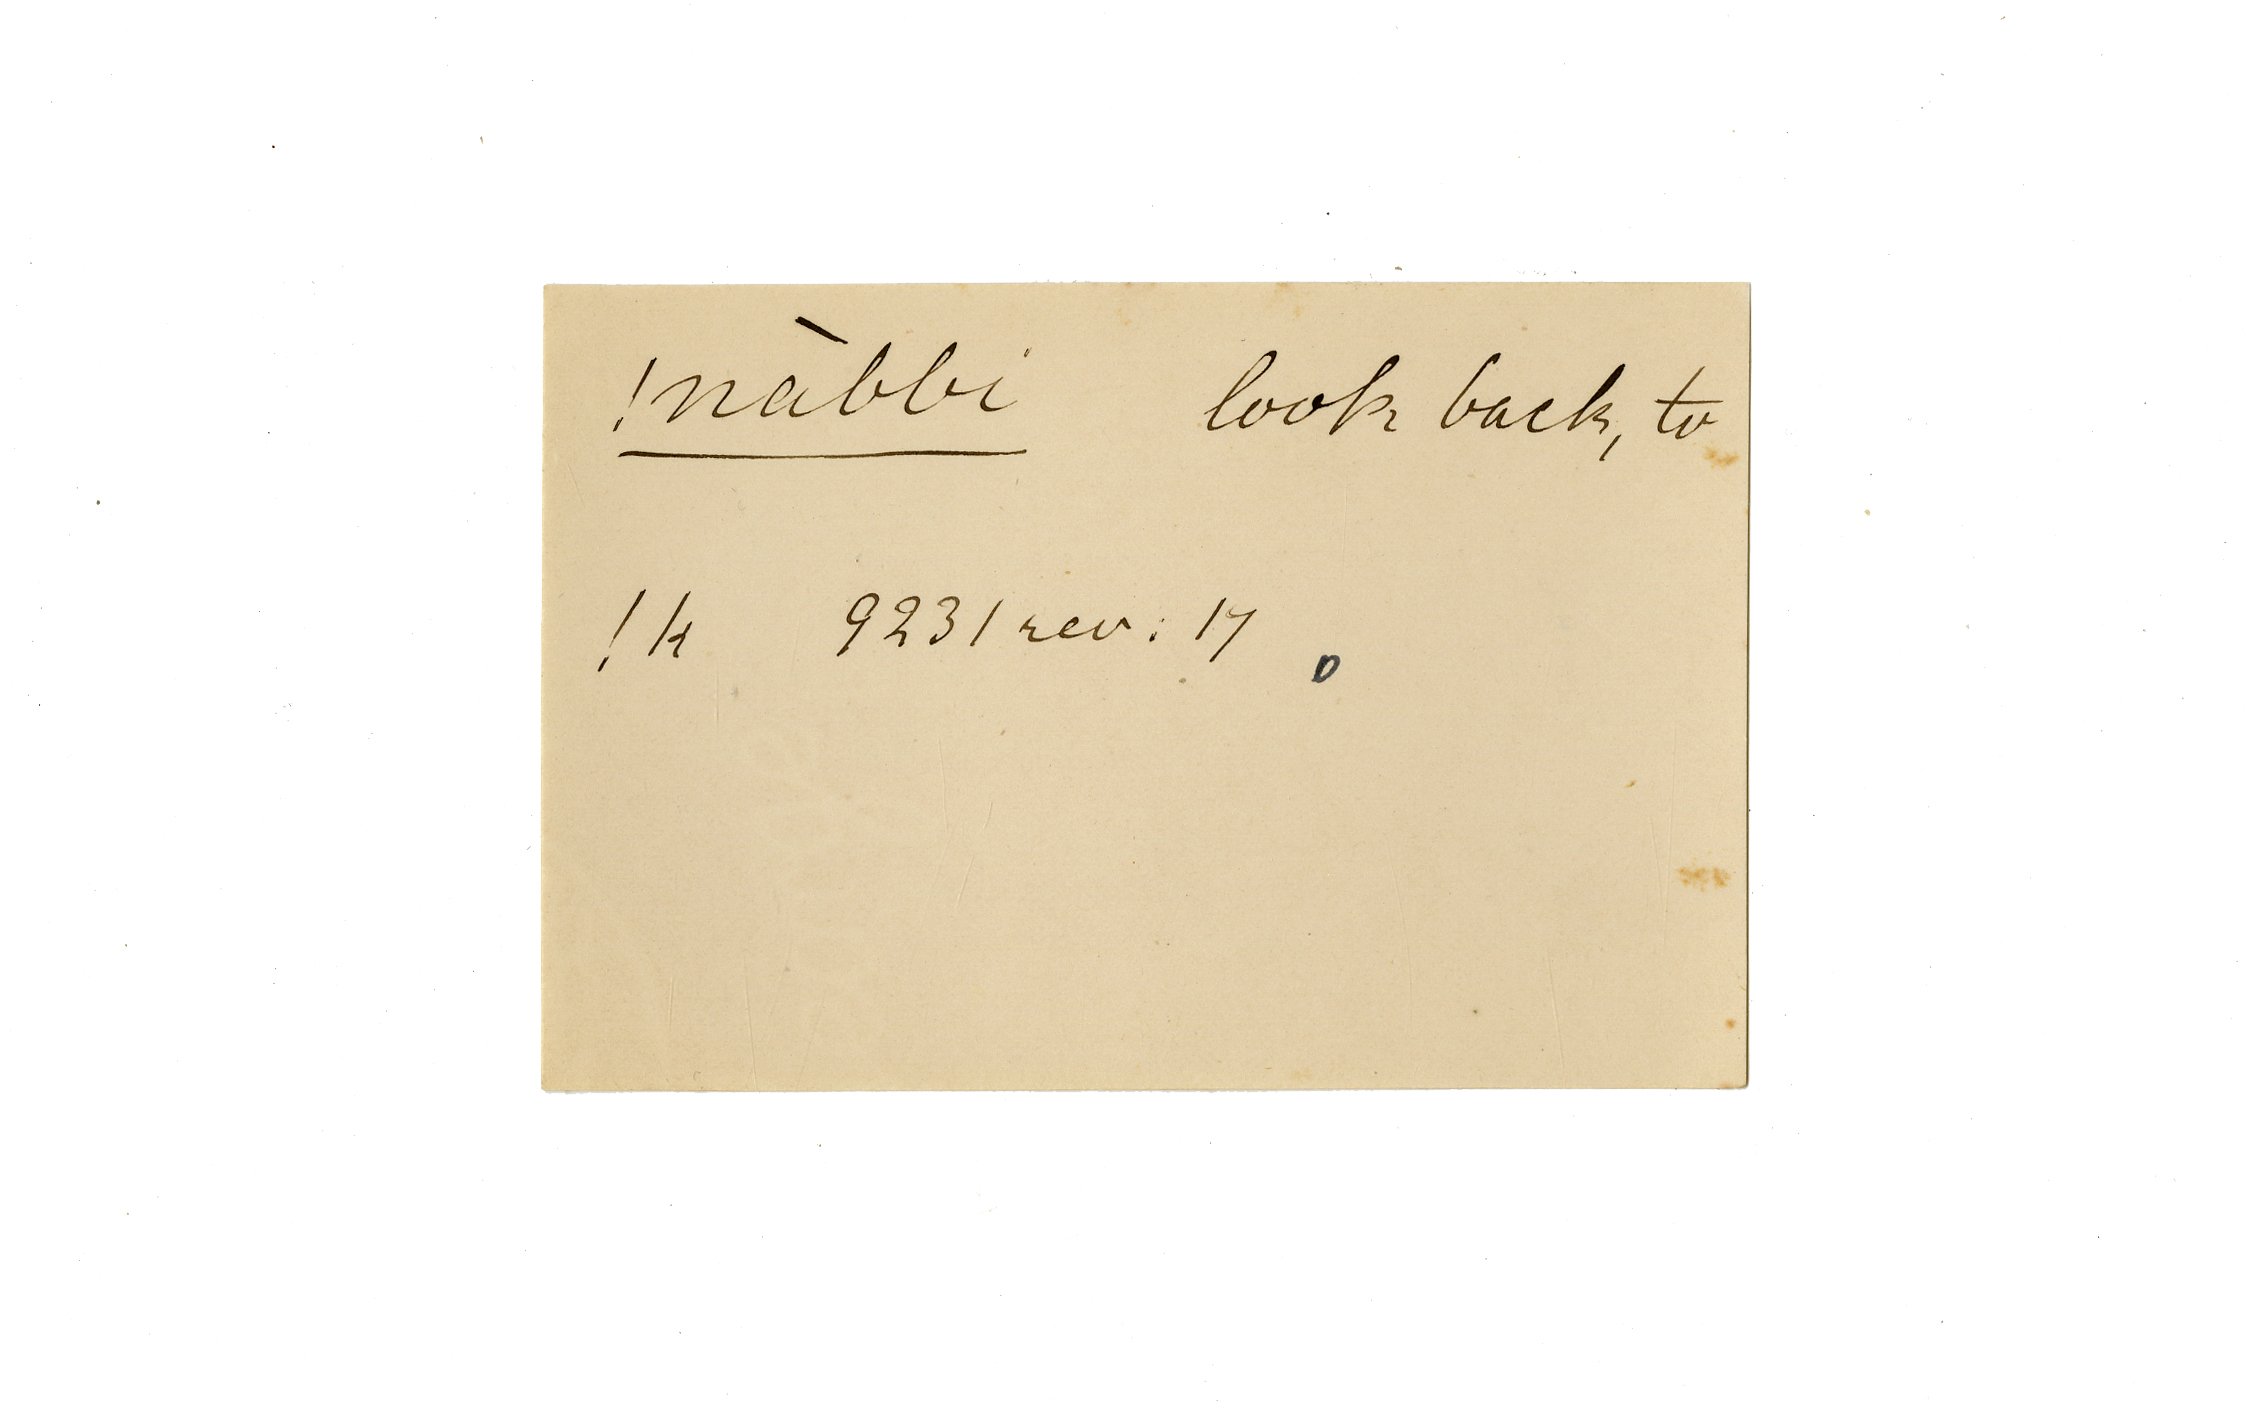 !nàbbi look back, to
!k 9231 rev: 17